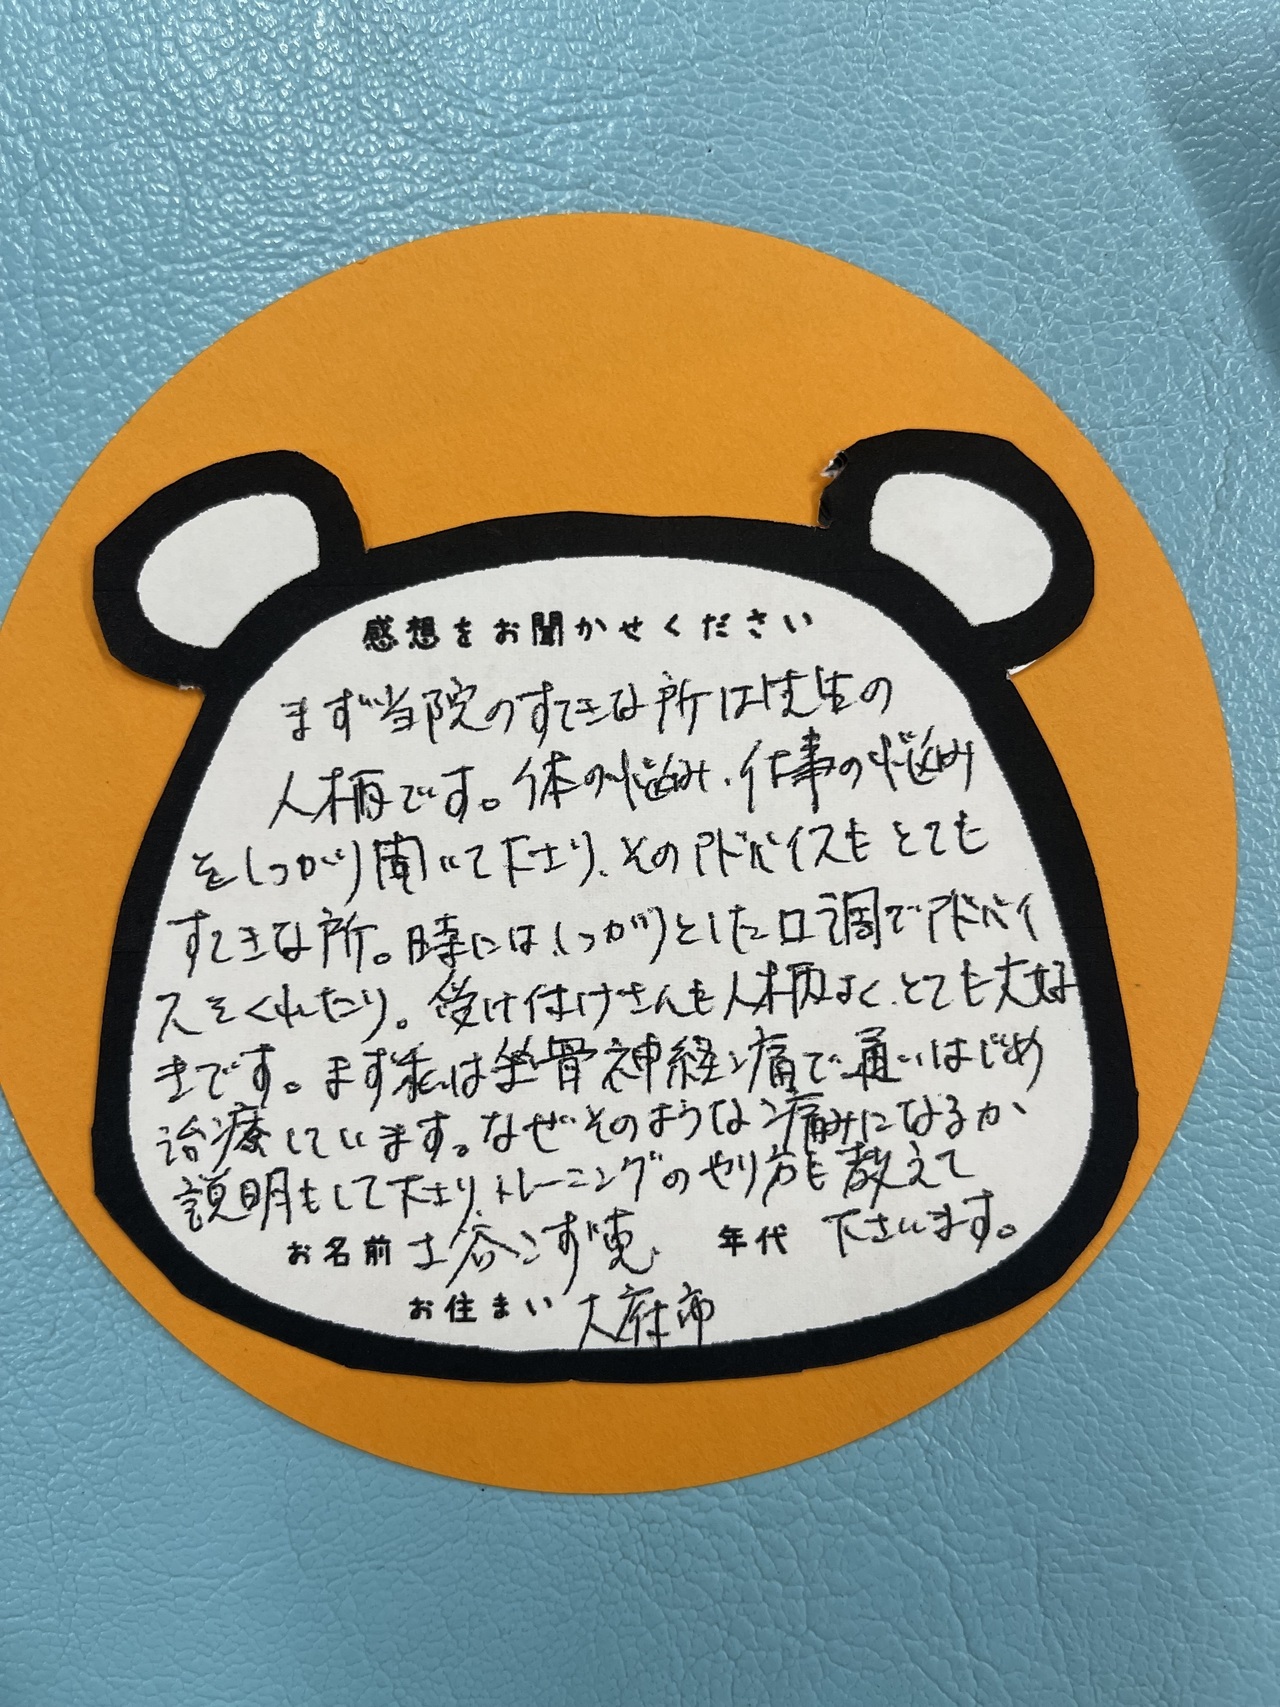 感想をお聞かせください
まず当院のすてきな所は先生の
人柄です。体の悩み、仕事の悩み
をしっかり聞いて下さり、そのアドバイスもとても
すてきな所。時にはしっかりとした口調でアドバイ
スをくれたり。受け付けさんも人柄よく、とても大好
きです。まず私は坐骨神経痛で通いはじめ
治療しています。なぜそのような痛みになるか
説明もして下さり、トレーニングのやり方も教えて
下さいます。
お名前 土谷こず恵 年代
お住まい 大府市